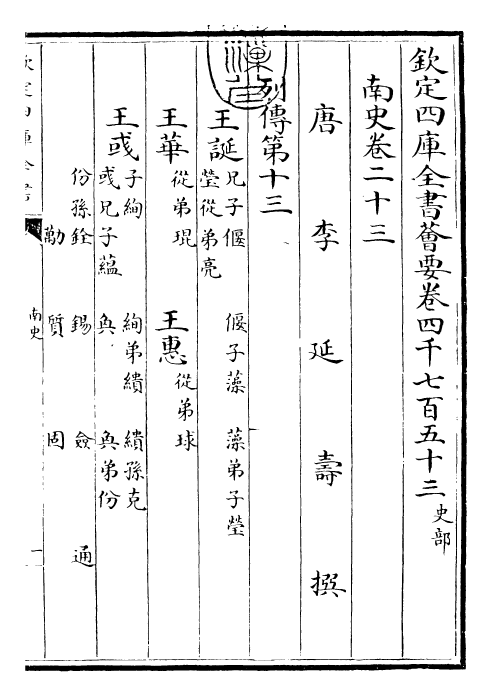 欽定四庫全書薈要卷四千七百五十三 史部
南史卷二十三
唐 李 延 壽 撰
列傳第十三
王誕 兄子偃 偃子藻 藻弟子瑩
瑩從弟亮
王華 從弟琨 王惠 從弟球
王彧 子絢 絢弟繢 繢孫克
彧兄子蘊 奐 奐弟份
份孫銓 錫 僉 通
勱 質 固
南史
一